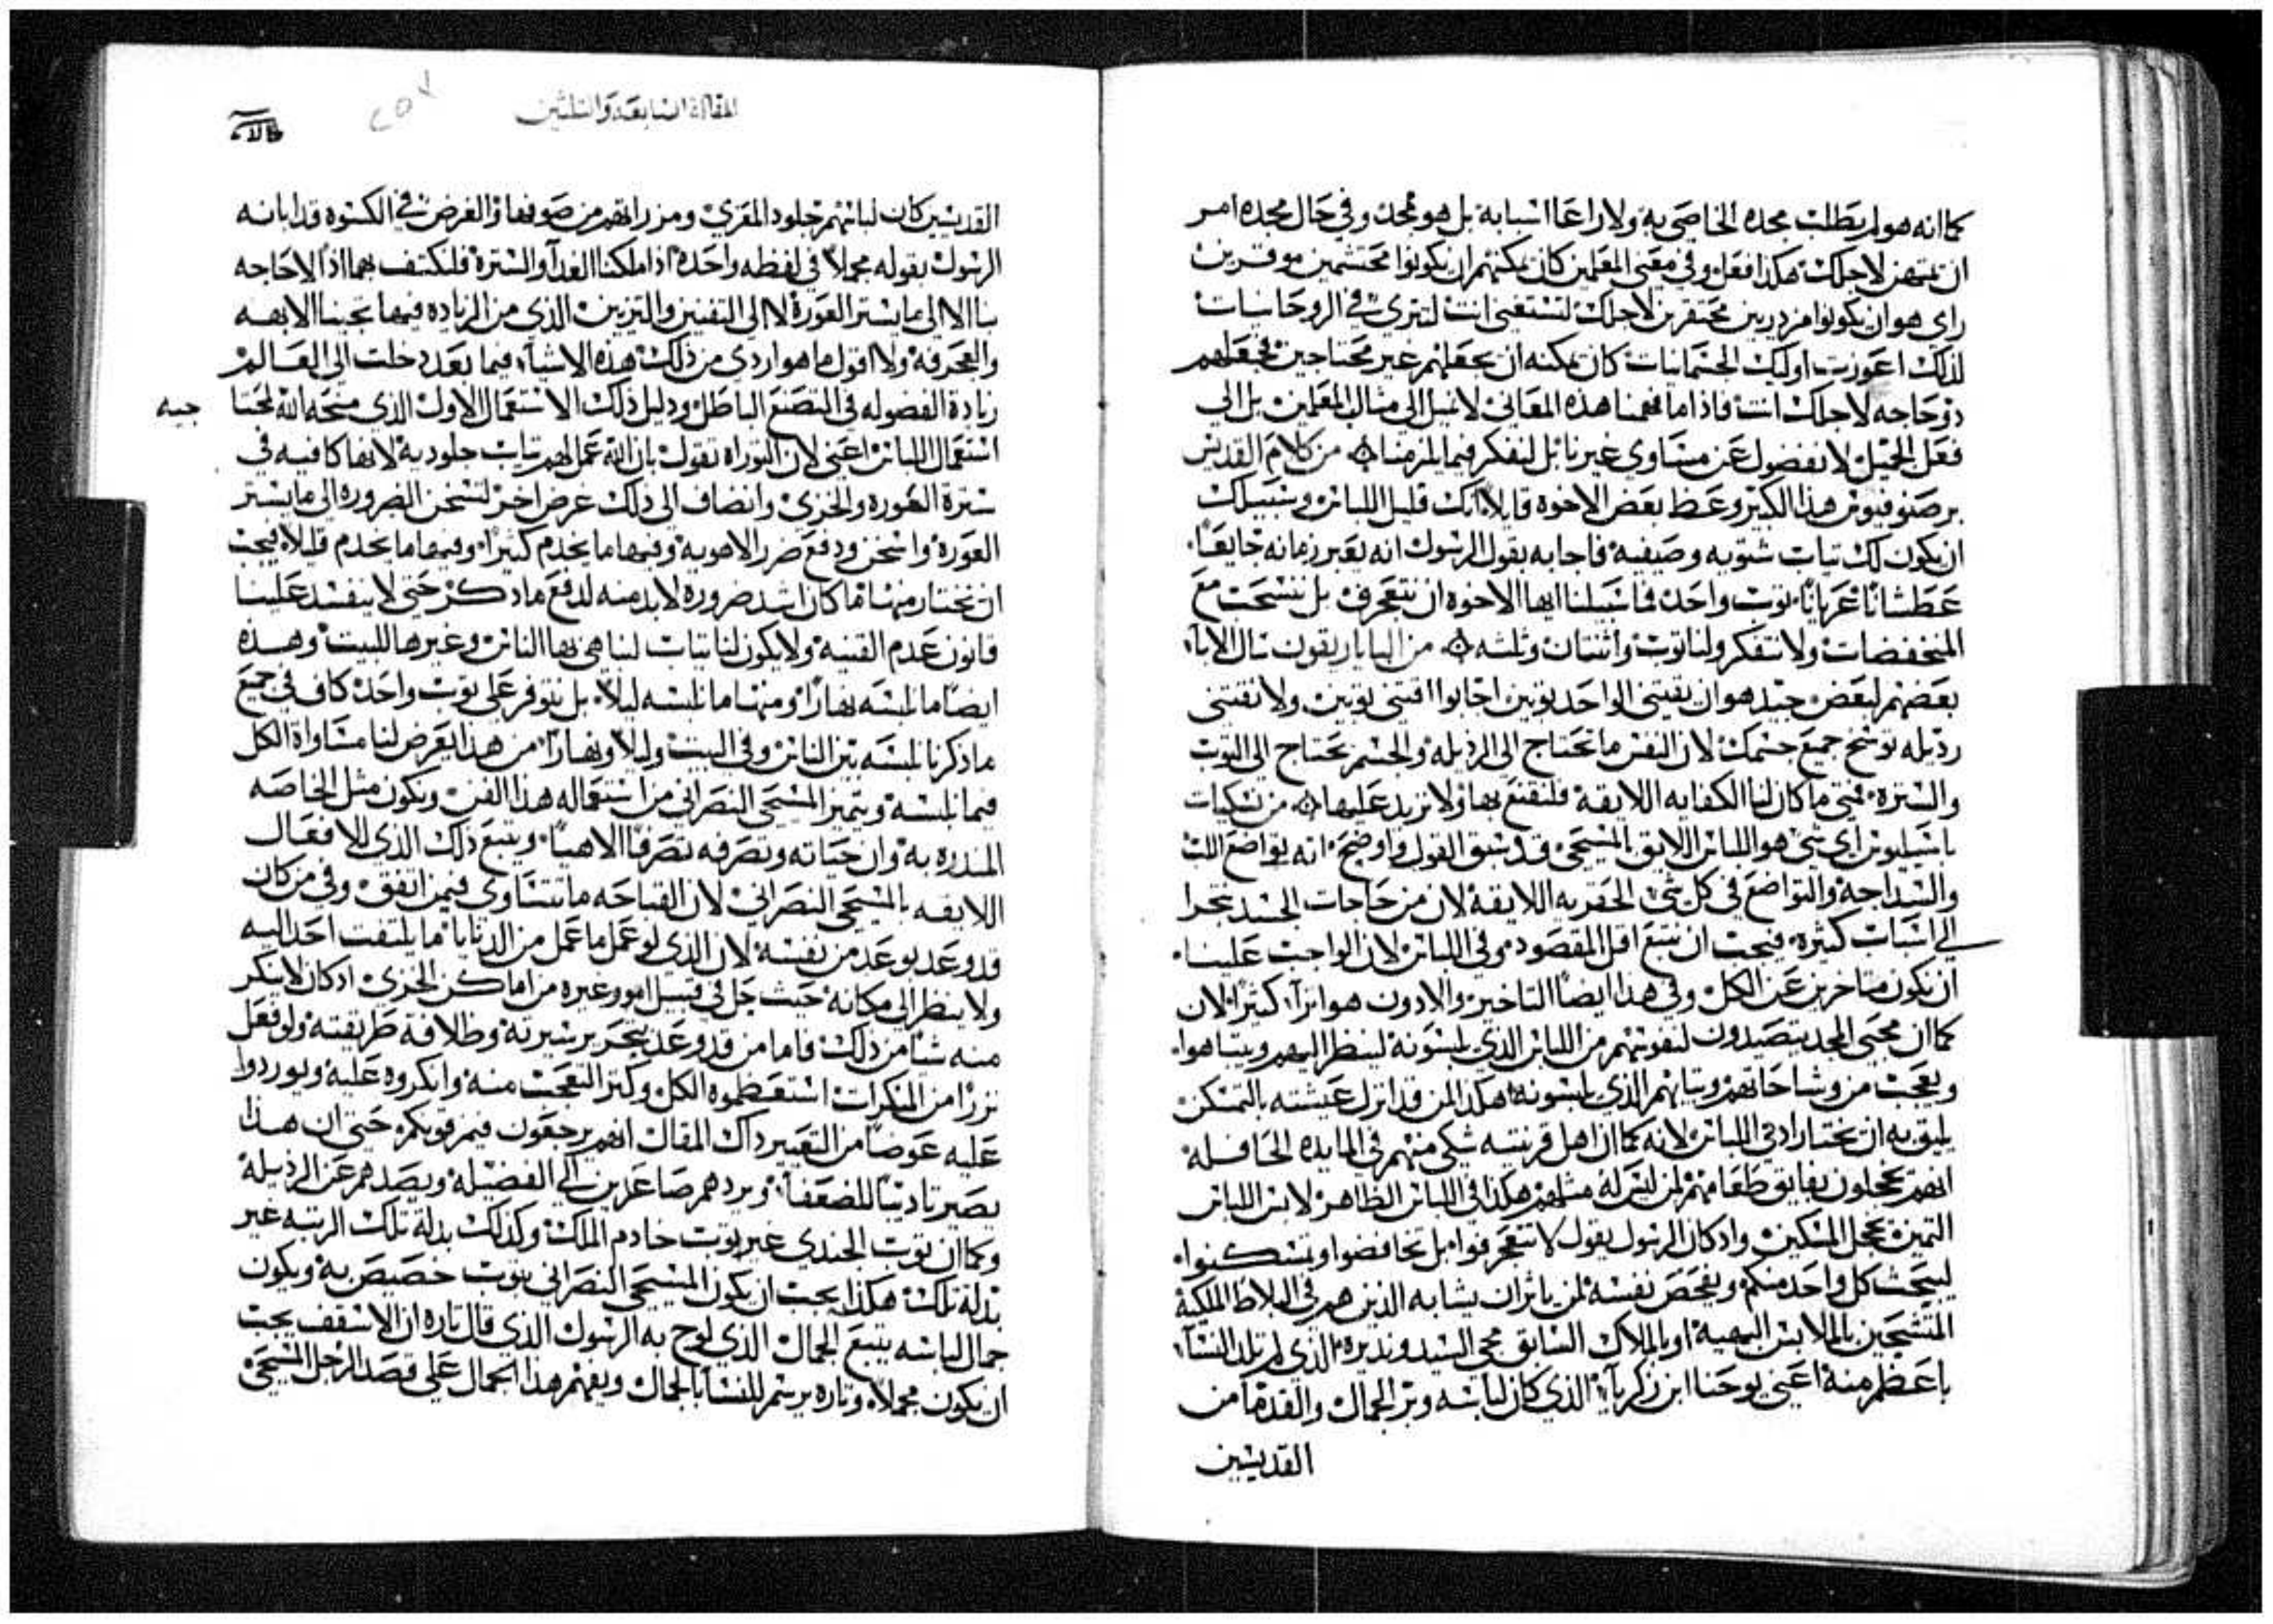 كما انه هو لم يطلب مجده الخاصي به ولا راعا اسبابه بل هو مجد وفي حال مجده امر
ان تمتهن لاجلك هكذا فعل وفي معنى المعلمين كان يمكنهم ان يكونوا محتشمين موقرين
راي هو ان يكونوا مزدريين محتقرين لاجلك لتستغنى انت لتترى في الروحانيات
لذلك اعوزت اوليك الجسمانيات كان يمكنه ان يجعلهم غير محتاجين فجعلهم
ذو حاجه لاجلك انت فاذا ما فهمنا هذه المعاني لا نميل الى مثال المعلمين بل الى
فعل الجميل لا نفضول عن مساوي غيرنا بل لنفكر فيما يلزمنا من كلام القديس
برصنوفيوس هذا الكبير وعظ بعض الاخوه قايلا انك قليل اللباس وسبيلك
ان يكون لك تياب شتويه وصيفيه فاجابه بقول الرسول انه يعبر زمانه جايعا
عطشانا عريانا بتوب واحد فما سبيلنا ايها الاخوه ان نتعجرف بل ننسحب مع
المنخفضات ولا نتفكر ولنا توب واثنتان وثلثه من الباباريقون سال الابا
بعضهم لبعض جيد هو ان يقتني الواحد توبين اجابوا اقتني توبين ولا تقتني
رذيله توسخ جميع جسمك لان النفس ما تحتاج الى الرذيله والجسم يحتاج الى التوب
والستره فمتى ما كان لنا الكفايه اللايقه فلنقتنع بها ولا نزيد عليها من نسكيات
باسيليوس اي شي هو اللباس اللايق بالمسيحي قد سبق القول واوضح انه تواضع اللب
والسداجة والتواضع في كل شي الحقريه اللايقة لان من حاجات الجسد تجرا
الى اسباب كثيره فيجب ان نتبع اقل المقصود وفي اللباس لان الواجب علينا
ان نكون متاخرين عن الكل وفي هذا ايضا التاخير والادون هو اثرا كثيرا لان
كما ان محبي المجد يتصيدون لنفوسهم من اللباس الذي يلبسونه لينظر اليهم ويتباهوا
ويعجب من وشاحاتهم وتيابهم الذي يلبسونه هكذا لمن قد انزل عيشته بالتمسكن
يليق به ان يختار ادنى اللباس لانه كما ان اهل قرنتيه شكي منهم في المايده الحافله
انهم يخجلون بفايق طعامهم لمن ليس له مثلهم هكذا في اللباس الظاهر لابس اللباس
التمين يخجل المسكين واد كان الرسول يقول لا تتعجرفوا بل تخافضوا وتمسكنوا
ليبحث كل واحد منكم ويفحص نفسه لمن ياثر ان يشابه الذين هم في البلاط الملكية
المتشحين بالملابس البهية او بالملاك السابق مجي السيد ونديره الذي لم تلد النسا
باعظم منه اعني يوحنا ابن زكريا الذي كان لباسه وبر الجمال والقدما من
القديسين
المقالة السابعه والثلثين
القديسين كان لباسهم جلود المعزي ومزراتهم من صوفها والغرض في الكسوه قد ابانه
الرسول بقوله مجملا في لفظه واحده اذا ملكنا الغدا والسترة فلنكتف بهما اذ لا حاجه
بنا الا الى ما يستر العورة لا الى التفنين والتزيين الذي من الزياده فيها تجبنا الابهه
والعجرفه ولا اقول ما هو اردى من ذلك هذه الاشيا فيما بعد دخلت الى العالم
زيادة الفضوله في التصنع الباطل ودليل ذلك الاستعمال الاول الذي منحه الله لمحتا
جيه
استعمال اللباس اعني لان التوراه تقول بان الله عمل لهم تياب جلوديه لانها كافيه في
سترة العورة والخزي وانضاف الى ذلك غرض اخر لتسخن الضروره الى ما يستر
العورة واسخن ودفع ضرر الاهويه وفيها ما يخدم كثيرا وفيها ما يخدم قليلا فيجب
ان نختار منها ما كان اشد ضروره لا بد منه لدفع ما دكر حتى لا ينفسد علينا
قانون عدم القنيه ولا يكون لنا تياب لنباهي بها الناس وغيرها للبيت وهذه
ايضا ما نلبسه نهارا ومنها ما نلبسه ليلا بل نتوفر على توب واحد كاف في جميع
ما دكرنا نلبسه بين الناس وفي البيت وليلا ونهارا من هذا يعرض لنا مساواة الكل
فيما نلبسه ويتميز المسيحي النصراني من استعماله هذا الفن ويكون مثل الخاصه
المندره به وان حياته وتصرفه تصرفا الاهيا ويتبع ذلك الذي للافعال
اللايقه بالمسيحي النصراني لان القباحه ما تتساوى فيمن اتفق وفي من كان
قد وعد بوعد من نفسه لان الذي لو عمل ما عمل من الدنايا ما يلتفت احد اليه
ولا ينظر الى مكانه حيث جل في قبيل امور وغيره من اماكن الخزي اد كان لا ينكر
منه شيا من ذلك فاما من قد وعد بتحرير سيرته وظلافة طريقته ولو فعل
نزرا من المنكرات استعظموه الكل وكتر التعجب منه وانكروه عليه ويوردوا
عليه عوضا من التعيير داك المقال انهم يرجعون فيمزقونكم حتى ان هذا
يصير تاديبا للضعفا ويردهم صاعدين الى الفضيله ويصدهم عن الرذيله
وكما ان توب الجندي غير توب خادم الملك وكذلك بدلة تلك الرتبه غير
بدلة تلك هكذا يجب ان يكون المسيحي النصراني بتوب خصيص به ويكون
جمال لباسه يتبع الجمال الذي لوح به الرسول الذي قال تاره ان الاسقف يجب
ان يكون مجملا وتاره يرسم للنسا بالجمال ويفهم هذا الجمال على قصد الرجل المسيحي